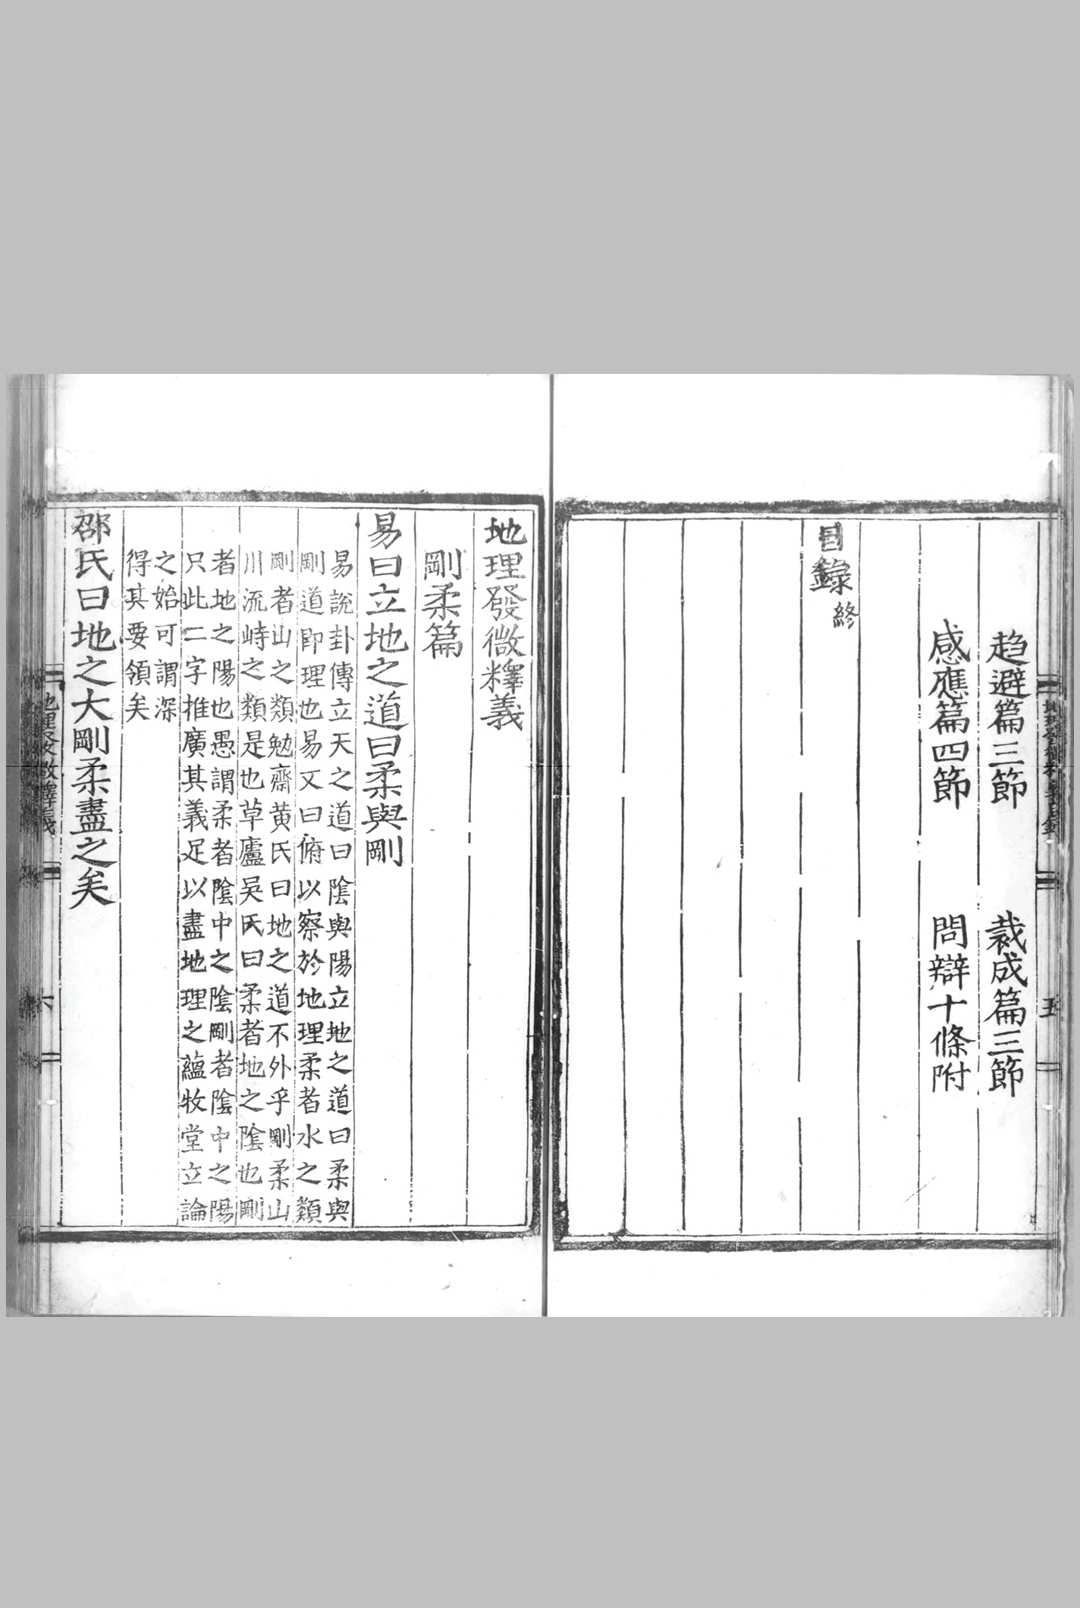 趋避篇三節　裁成篇三節
感應篇四節　問辯十條附
目錄終
五
地理發微釋義
剛柔篇
易曰立地之道曰柔與剛
易說卦傳立天之道曰隂與陽立地之道曰柔與
剛道卽理也易又曰俯以察於地理柔者水之類
剛者山之類勉齋黄氏曰地之道不外乎剛柔山
川流峙之類是也草廬吳氏曰柔者地之隂也剛
者地之陽也愚謂柔者隂中之隂剛者隂中之陽
只此二字推廣其義足以盡地理之蘊牧堂立論
之始可謂深
得其要領矣
邵氏曰地之大剛柔盡之矣
地理發微釋義
六